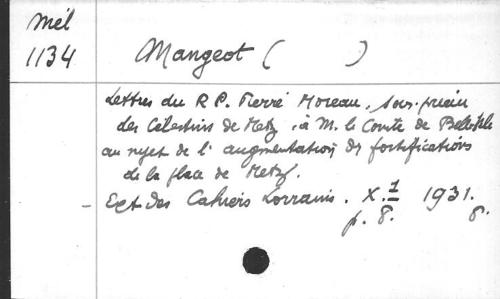 Mél
1134
Mangeot ( )
Lettres du R P. Pierre Moreau, sous-prieur
des Célestins de Metz, à M. le Comte de Belleisle
au sujet de l'augmentation des fortifications
de la place de Metz.
- Ext des Cahiers Lorrains. X. 1 1931.
p. 8. 8.